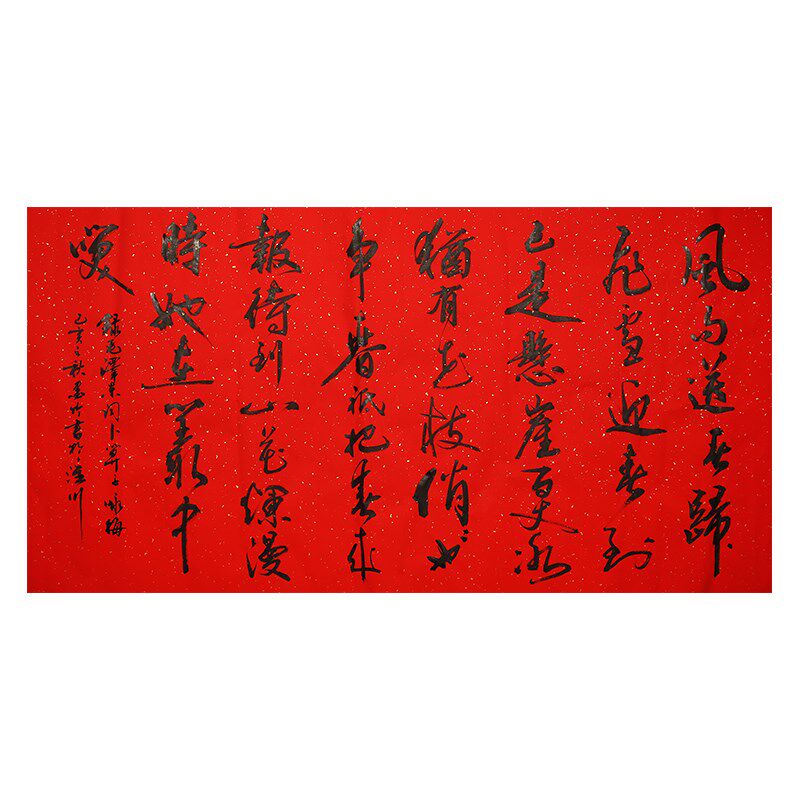 風雨送春歸
飛雪迎春到
已是懸崖百丈冰
猶有花枝俏也不
爭春祇把春來
報待到山花爛漫
時她在叢中
笑
錄毛澤東詞卜算子咏梅
己亥之秋墨竹書於川